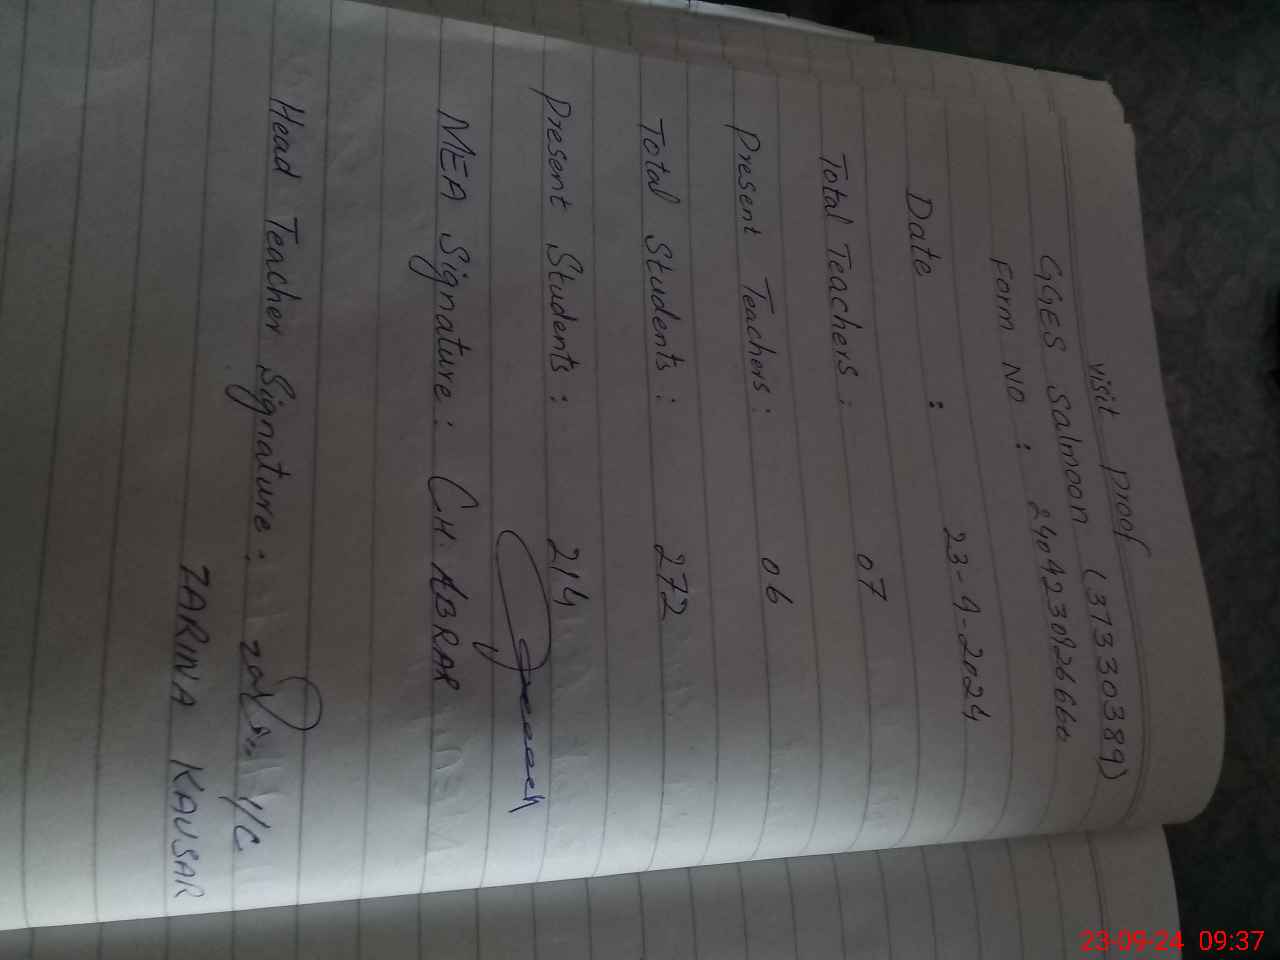 visit proof
GGES Salmoon (37330389)
Form No : 240423092666
Date : 23-9-2024
Total Teachers : 07
Present Teachers : 06
Total Students : 272
Present Students : 214
MEA Signature : CH. ABRAR
Head Teacher Signature : I/C
ZARINA KAUSAR
23-09-24 09:37